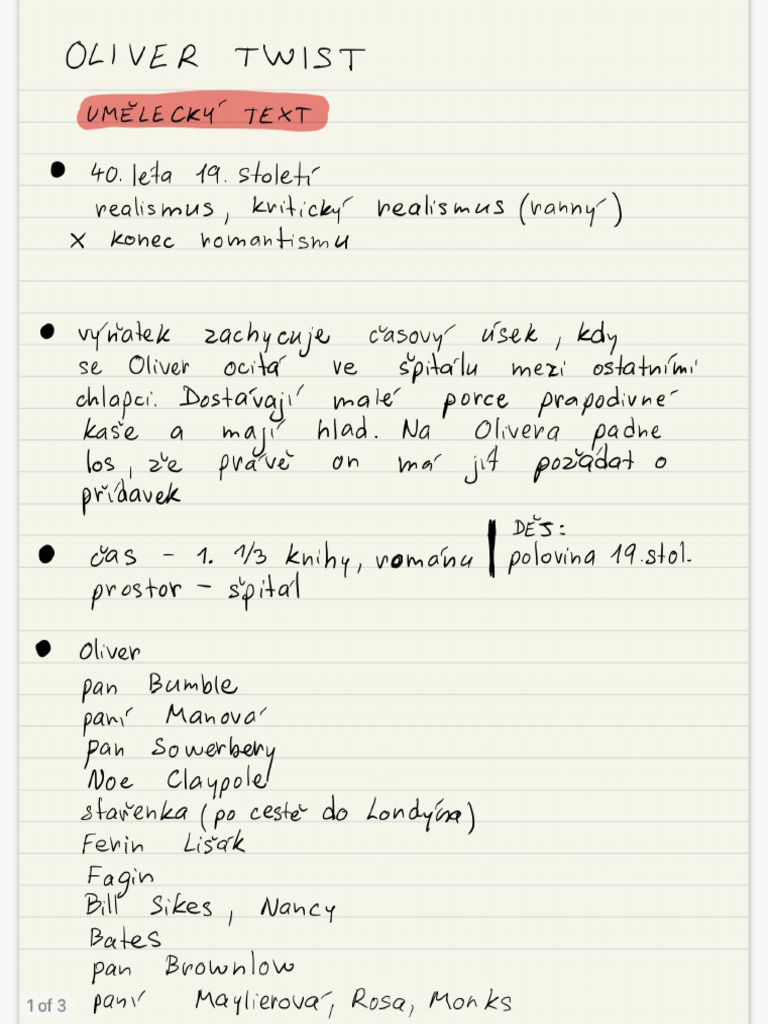 OLIVER TWIST
UMĚLECKÝ TEXT
• 40. leta 19. století
realismus, kritický realismus (ranný)
x konec romantismu
• výňatek zachycuje časový úsek, kdy
se Oliver ocitá ve špitálu mezi ostatními
chlapci. Dostávají malé porce prapodivné
kaše a mají hlad. Na Olivera padne
los, že právě on má jít požádat o
přídavek
• čas - 1. 1/3 knihy, románu | DĚJ:
polovina 19. stol.
prostor - špitál
• Oliver
pan Bumble
paní Manová
pan Sowerbery
Noe Claypole
stařenka (po cestě do Londýna)
Ferin Lišák
Fagin
Bill Sikes, Nancy
Bates
pan Brownlow
paní Maylierová, Rosa, Monks
1 of 3